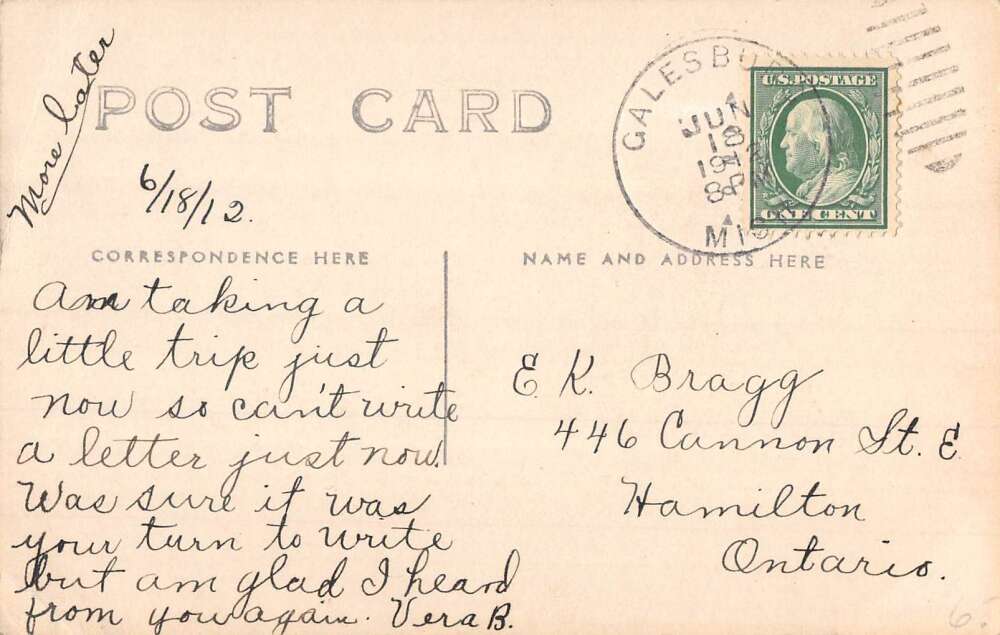 More later
POST CARD
6/18/12.
CORRESPONDENCE HERE
Am taking a
little trip just
now so can't write
a letter just now.
Was sure it was
your turn to write
but am glad I heard
from you again. Vera B.
GALESBU
JUN
18
8P
MI
U.S. POSTAGE
ONE CENT
NAME AND ADDRESS HERE
E. K. Bragg
446 Cannon St. E.
Hamilton
Ontario.
6.